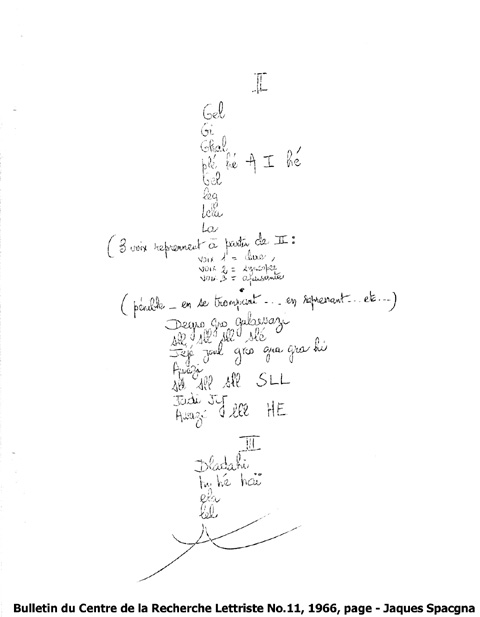 II
Gel
Gi
Ghal
plé hé A I hé
Gel
leg
lela
La
(3 voix reprennent à partir de II :
voix 1 =
voix 2 =
voix 3 =
(pénible _ en se trompant ... en reprenant ... etc...)
Degro gro
sll, sll sll slé
Jéjé gro gra gra hi
Avazi
sll sll sll SLL
Judi
Avazi lll HE
III
Dladahi
hy hé haï
ela
lel
Bulletin du Centre de la Recherche Lettriste No.11, 1966, page - Jaques Spacgna